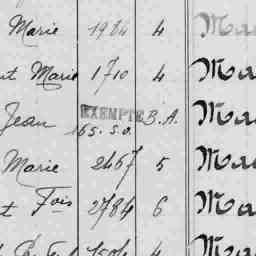 Marie 1984 4 Ma
t Marie 1710 4 Ma
Jean EXEMPTE B.A. Ma
165. S.O.
Marie 2467 5 Ma
t Fois 2784 6 Ma
4 Ma